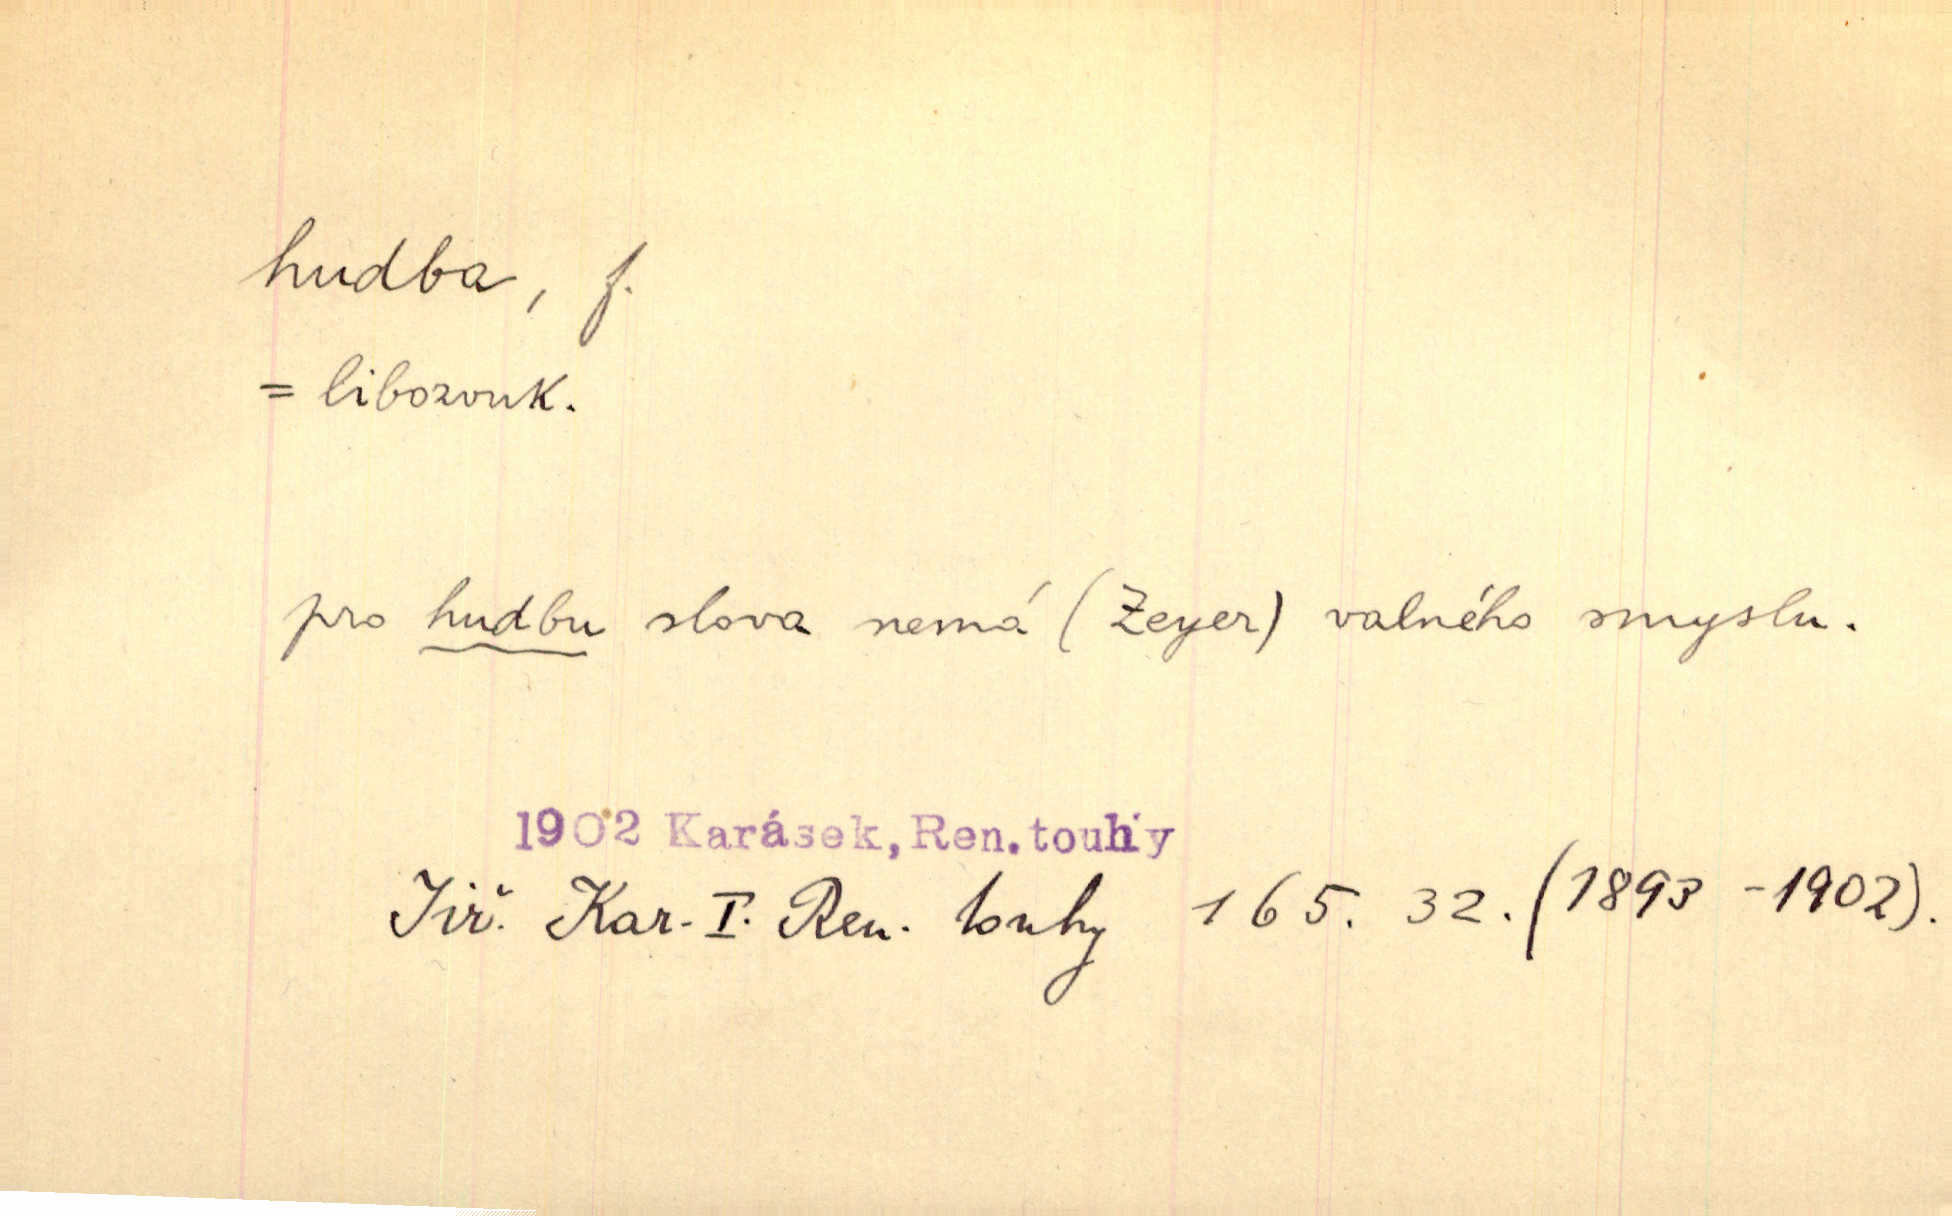 hudba, f.
= libozvuk.
pro hudbu slova nemá (Zeyer) valného smyslu.
1902 Karásek, Ren. touhy
Jiř. Kar. I. Ren. touhy 165. 32. (1893 - 1902).